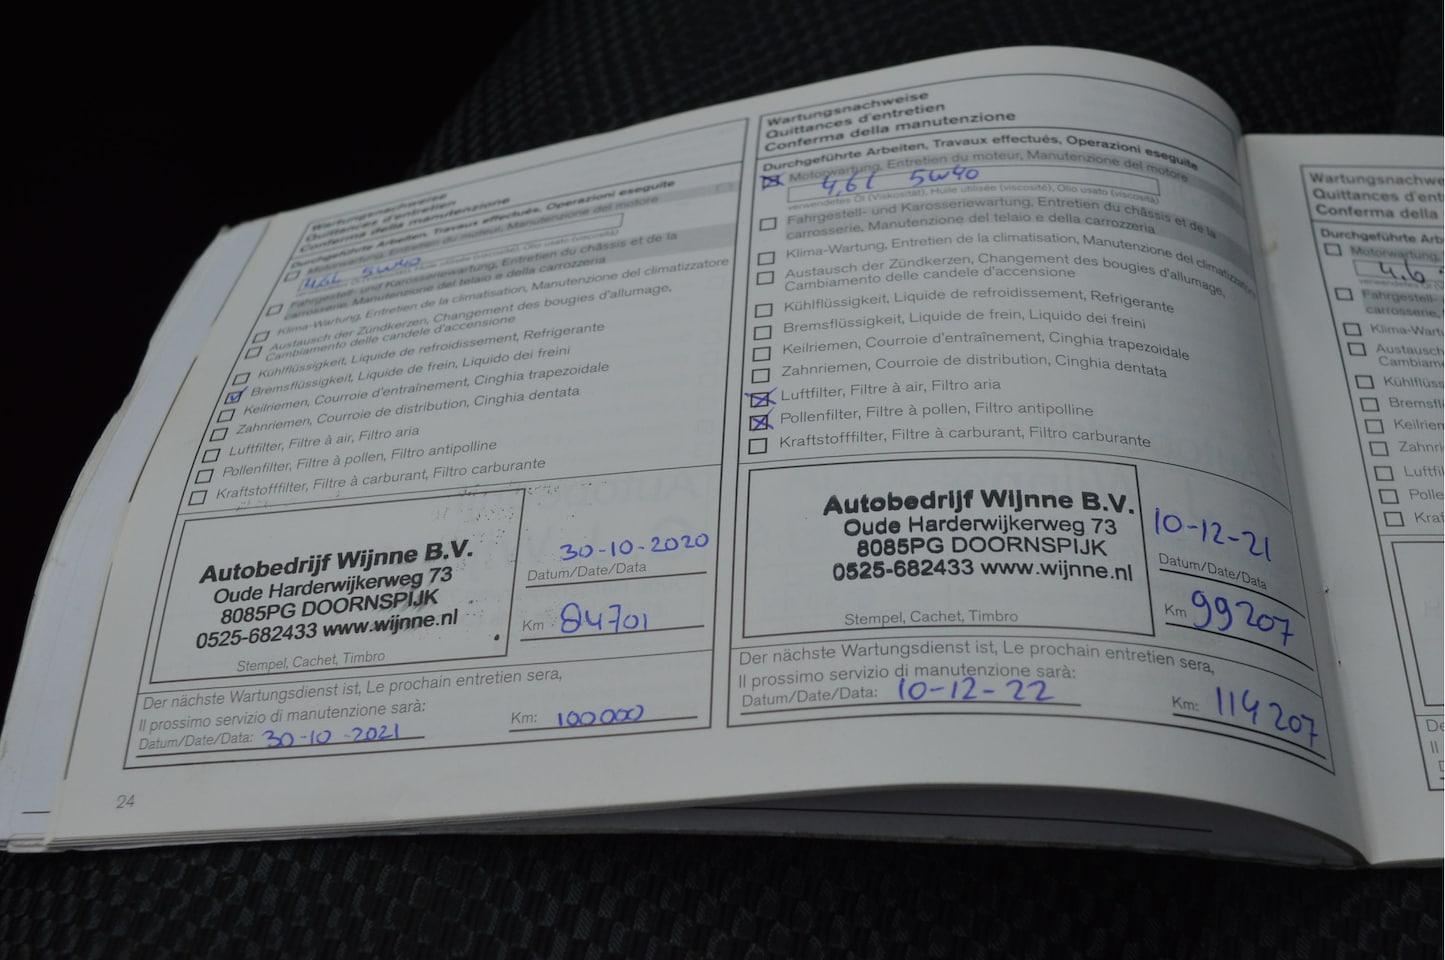 Wartungsnachweise
Quittances d'entretien
Conferma della manutenzione
Durchgeführte Arbeiten, Travaux effectués, Operazioni eseguite
Motorwartung, Entretien du moteur, Manutenzione del motore
4,6L 5W40
verwendetes Öl (Viskosität), Huile utilisée (viscosité), Olio usato (viscosità)
Fahrgestell- und Karosseriewartung, Entretien du châssis et de la
carrosserie, Manutenzione del telaio e della carrozzeria
Klima-Wartung, Entretien de la climatisation, Manutenzione del climatizzatore
Austausch der Zündkerzen, Changement des bougies d'allumage,
Cambiamento delle candele d'accensione
Kühlflüssigkeit, Liquide de refroidissement, Refrigerante
Bremsflüssigkeit, Liquide de frein, Liquido dei freini
Keilriemen, Courroie d'entraînement, Cinghia trapezoidale
Zahnriemen, Courroie de distribution, Cinghia dentata
Luftfilter, Filtre à air, Filtro aria
Pollenfilter, Filtre à pollen, Filtro antipolline
Kraftstofffilter, Filtre à carburant, Filtro carburante
Autobedrijf Wijnne B.V.
Oude Harderwijkerweg 73
8085PG DOORNSPIJK
0525-682433 www.wijnne.nl
Stempel, Cachet, Timbro
30-10-2020
Datum/Date/Data
Km 84701
Der nächste Wartungsdienst ist, Le prochain entretien sera,
Il prossimo servizio di manutenzione sarà:
Datum/Date/Data: 30-10-2021 Km: 100000
24
Wartungsnachweise
Quittances d'entretien
Conferma della manutenzione
Durchgeführte Arbeiten, Travaux effectués, Operazioni eseguite
Motorwartung, Entretien du moteur, Manutenzione del motore
4,6l 5W40
verwendetes Öl (Viskosität), Huile utilisée (viscosité), Olio usato (viscosità)
Fahrgestell- und Karosseriewartung, Entretien du châssis et de la
carrosserie, Manutenzione del telaio e della carrozzeria
Klima-Wartung, Entretien de la climatisation, Manutenzione del climatizzatore
Austausch der Zündkerzen, Changement des bougies d'allumage,
Cambiamento delle candele d'accensione
Kühlflüssigkeit, Liquide de refroidissement, Refrigerante
Bremsflüssigkeit, Liquide de frein, Liquido dei freini
Keilriemen, Courroie d'entraînement, Cinghia trapezoidale
Zahnriemen, Courroie de distribution, Cinghia dentata
Luftfilter, Filtre à air, Filtro aria
Pollenfilter, Filtre à pollen, Filtro antipolline
Kraftstofffilter, Filtre à carburant, Filtro carburante
Autobedrijf Wijnne B.V.
Oude Harderwijkerweg 73
8085PG DOORNSPIJK
0525-682433 www.wijnne.nl
Stempel, Cachet, Timbro
10-12-21
Datum/Date/Data
Km 99207
Der nächste Wartungsdienst ist, Le prochain entretien sera,
Il prossimo servizio di manutenzione sarà:
Datum/Date/Data: 10-12-22 Km: 114207
Wartungsnachwe
Quittances d'ent
Conferma della
Durchgeführte Arb
Motorwartung,
4,6
Fahrgestell-
carrosserie,
Klima-Wart
Austausch
Cambiame
Kühlflüss
Bremsfl
Keilriem
Zahnri
Luftfil
Polle
Kraf
De
Il